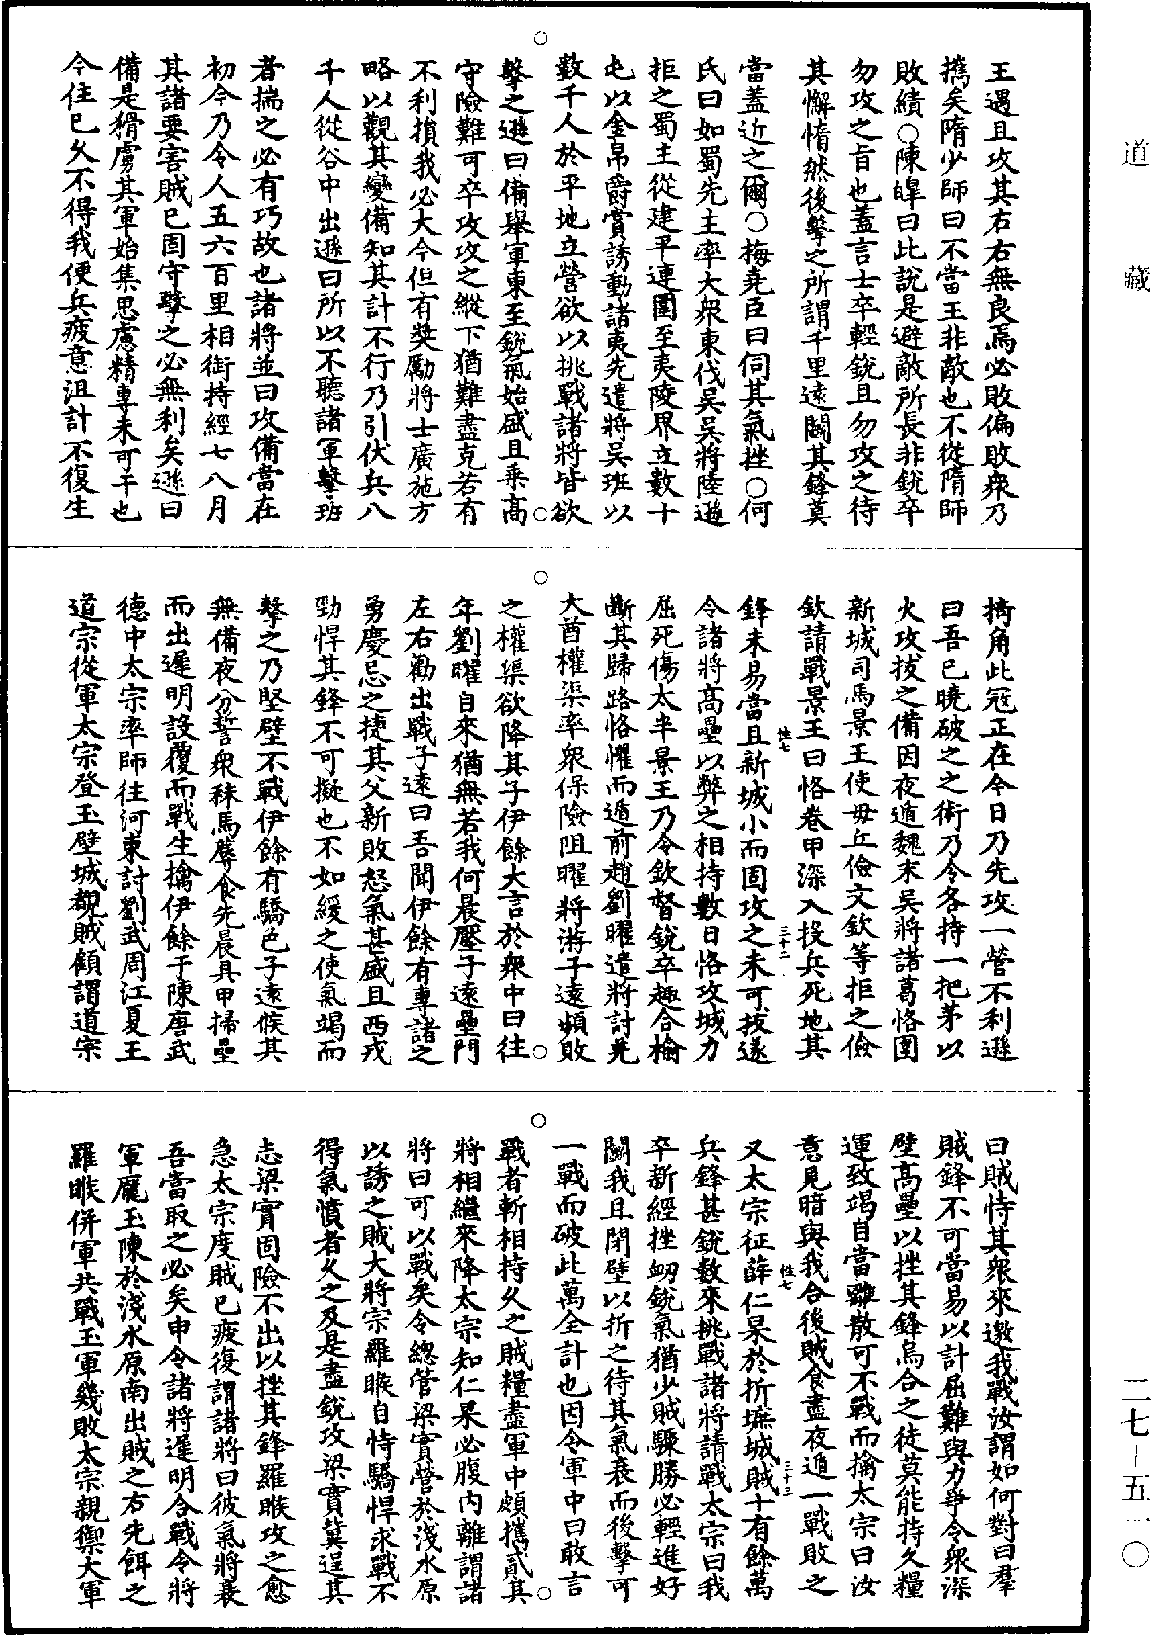 道藏
王遇且攻其右右無良焉必敗偏敗衆乃
攜矣隋少師曰不當王非敵也不從隋師
敗績○陳皥曰此說是避敵所長非銳卒
勿攻之旨也蓋言士卒輕銳且勿攻之待
其懈惰然後擊之所謂千里遠鬬其鋒莫
當蓋近之爾○梅堯臣曰伺其氣挫○何
氏曰如蜀先主率大衆東伐吳吳將陸遜
拒之蜀主從建平連圍至夷陵界立數十
屯以金帛爵賞誘動諸夷先遣將吳班以
數千人於平地立營欲以挑戰諸將皆欲
擊之遜曰備舉軍東至銳氣始盛且乘高
守險難可卒攻攻之縱下猶難盡克若有
不利損我必大今但有獎勵將士廣施方
略以觀其變備知其計不行乃引伏兵八
千人從谷中出遜曰所以不聽諸軍擊班
者揣之必有巧故也諸將並曰攻備當在
初今乃令人五六百里相銜持經七八月
其諸要害賊已固守擊之必無利矣遜曰
備是猾虜其軍始集思慮精專未可干也
今住已久不得我便兵疲意沮計不復生
掎角此冦正在今日乃先攻一營不利遜
曰吾已曉破之之術乃令各持一把茅以
火攻拔之備因夜遁魏末吳將諸葛恪圍
新城司馬景王使毋丘儉文欽等拒之儉
欽請戰景王曰恪卷甲深入投兵死地其
性七
三十二
鋒未易當且新城小而固攻之未可拔遂
令諸將高壘以弊之相持數日恪攻城力
屈死傷太半景王乃令欽督銳卒趣合榆
斷其歸路恪懼而遁前趙劉曜遣將討羌
大酋權渠率衆保險阻曜將游子遠頻敗
之權渠欲降其子伊餘大言於衆中曰往
年劉曜自來猶無若我何晨壓子遠壘門
左右勸出戰子遠曰吾聞伊餘有專諸之
勇慶忌之捷其父新敗怒氣甚盛且西戎
勁悍其鋒不可擬也不如緩之使氣竭而
擊之乃堅壁不戰伊餘有驕色子遠候其
無備夜分誓衆秣馬蓐食先晨具甲掃壘
而出遲明設覆而戰生擒伊餘于陳唐武
德中太宗率師往河東討劉武周江夏王
道宗從軍太宗登玉壁城覩賊顧謂道宗
曰賊恃其衆來邀我戰汝謂如何對曰羣
賊鋒不可當易以計屈難與力爭今衆深
壁高壘以挫其鋒烏合之徒莫能持久糧
運致竭自當離散可不戰而擒太宗曰汝
意見暗與我合後賊食盡夜遁一戰敗之
性七
三十三
又太宗征薛仁杲於折墌城賊十有餘萬
兵鋒甚銳數來挑戰諸將請戰太宗曰我
卒新經挫衂銳氣猶少賊驟勝必輕進好
鬬我且閉壁以折之待其氣衰而後擊可
一戰而破此萬全計也因令軍中曰敢言
戰者斬相持久之賊糧盡軍中頗攜貳其
將相繼來降太宗知仁杲必腹內離謂諸
將曰可以戰矣令總管梁實營於淺水原
以誘之賊大將宗羅睺自恃驕悍求戰不
得氣憤者久之及是盡銳攻梁實冀逞其
志梁實固險不出以挫其鋒羅睺攻之愈
急太宗度賊已疲復謂諸將曰彼氣將衰
吾當取之必矣申令諸將遲明合戰令將
軍龐玉陳於淺水原南出賊之右先餌之
羅睺併軍共戰玉軍幾敗太宗親禦大軍
二七-五一〇